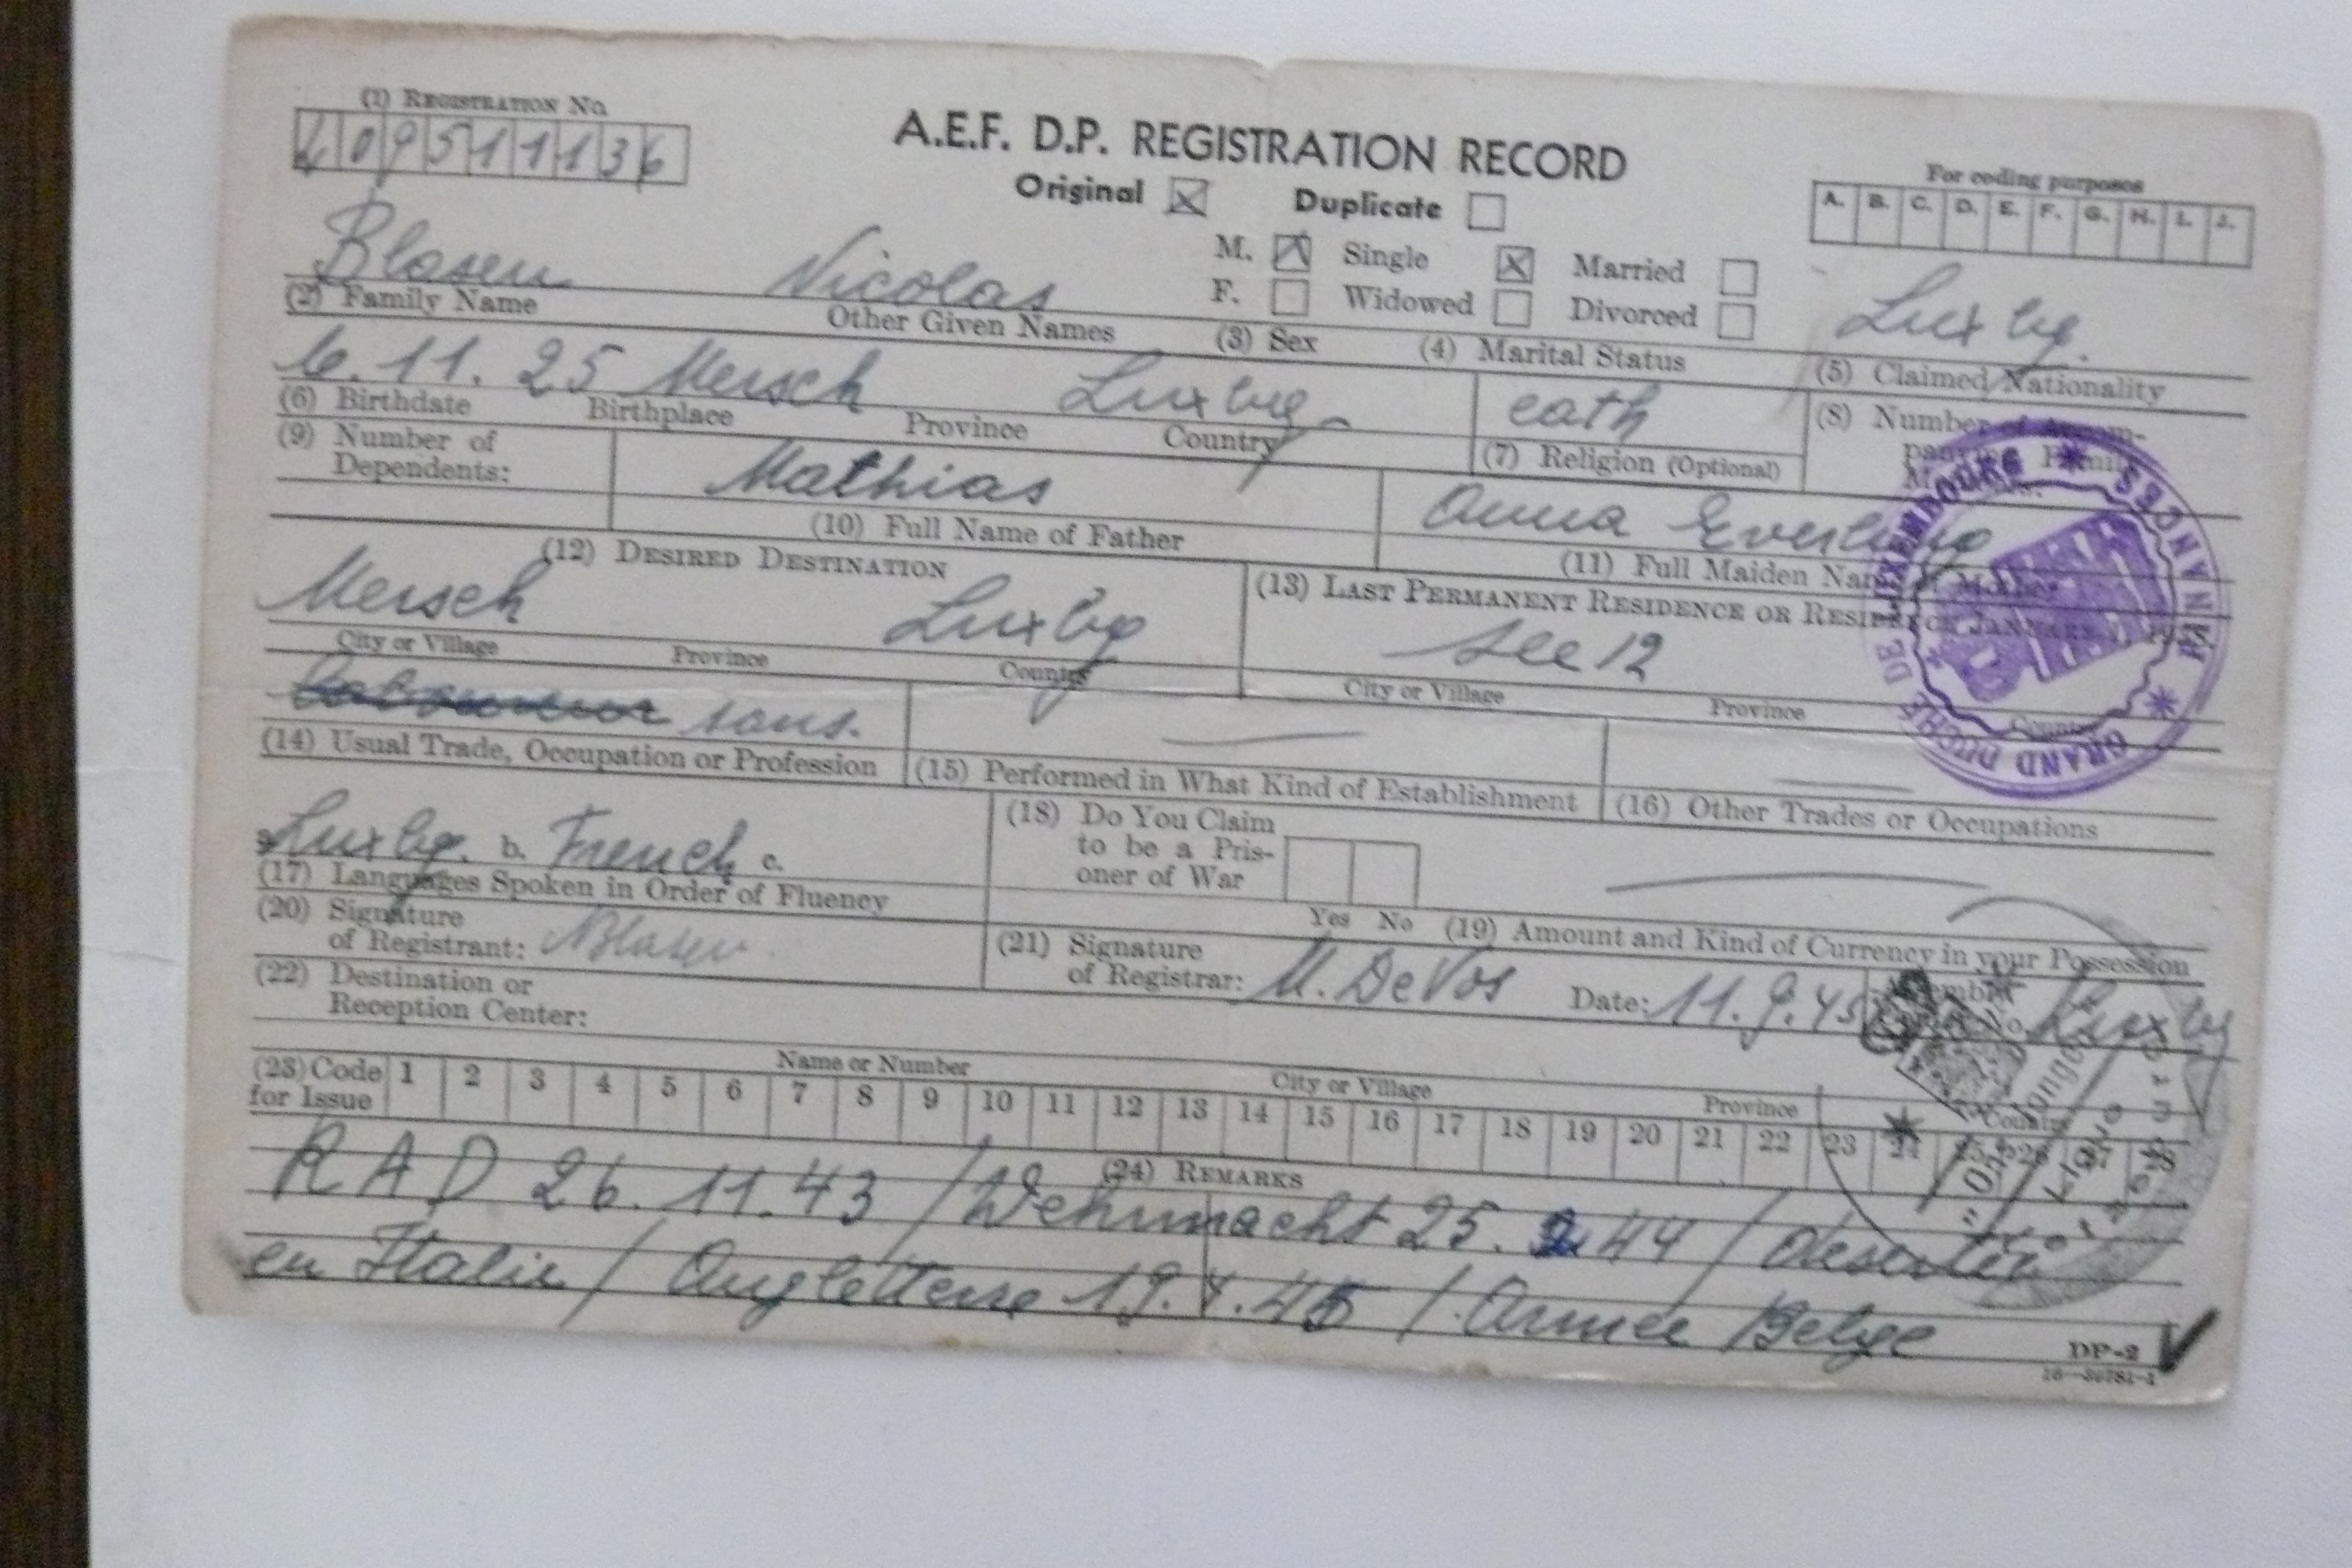 (1) REGISTRATION No.
A.E.F. D.P. REGISTRATION RECORD
Original ☒ Duplicate ☐
For coding purposes
A. B. C. D. E. F. G. H. I. J.
Blasen Nicolas
M. ☒ Single ☒ Married ☐
F. ☐ Widowed ☐ Divorced ☐
Luxbg.
(2) Family Name Other Given Names (3) Sex (4) Marital Status (5) Claimed Nationality
6.11.25 Mersch Luxbg. cath
(6) Birthdate Birthplace Province Country (7) Religion (Optional)
(8) Number of Accom-
panying Family
(9) Number of
Dependents:
Mathias
(10) Full Name of Father
Anna Everling
(11) Full Maiden Name of Mother
(12) DESIRED DESTINATION
Mersch Luxbg
City or Village Province Country
(13) LAST PERMANENT RESIDENCE OR RESIDENCE JANUARY 1, 1938.
see 12
City or Village Province Country
sans.
(14) Usual Trade, Occupation or Profession (15) Performed in What Kind of Establishment (16) Other Trades or Occupations
a. Luxbg. b. French c.
(17) Languages Spoken in Order of Fluency
(18) Do You Claim
to be a Pris-
oner of War
Yes No
(19) Amount and Kind of Currency in your Possession
(20) Signature
of Registrant: NBlasen
(21) Signature
of Registrar: M. DeVos Date: 11.9.45 Assembly
No. Luxbg
(22) Destination or
Reception Center:
Name or Number City or Village Province Country
(23) Code
for Issue
1 2 3 4 5 6 7 8 9 10 11 12 13 14 15 16 17 18 19 20 21 22 23 24 25 26 27 28
(24) REMARKS
RAD 26.11.43 / Wehrmacht 25. 2. 44 / deserté
en Italie / Angleterre 19.7.45 / Armée Belge
DP-2
16—39781-1
GRAND DUCHE DE LUXEMBOURG * FINANCES *